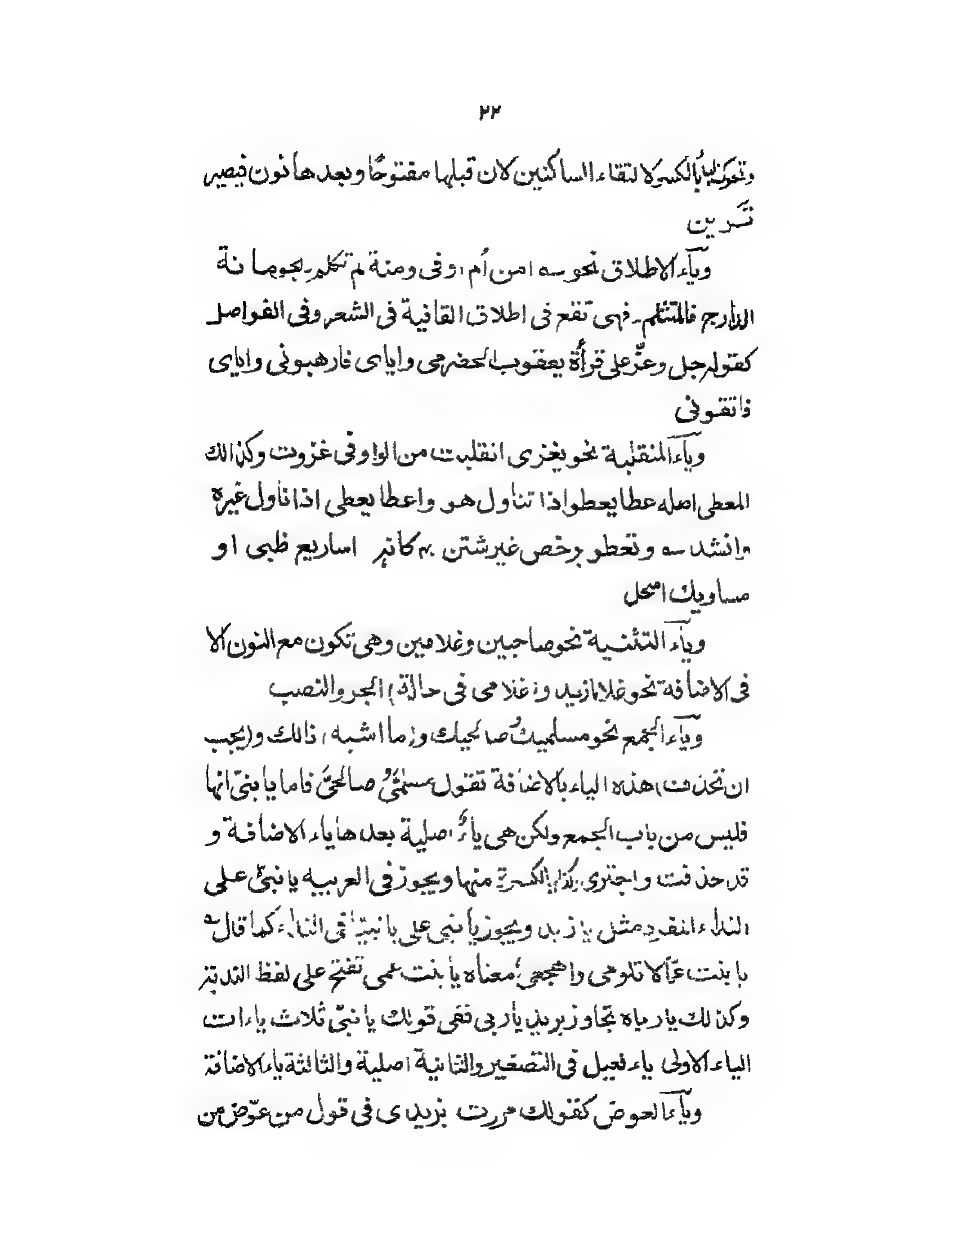 ٢٢
وتحركها بالكسر لالتقاء الساكنين لان قبلها مفتوحًا وبعدها نون فيصير
تَرين
وياء الاطلاق نحو سه امن أم اوفى ومنة لم تكلم بحومانة
الدارج فالمتثلم فهى تقع فى اطلاق القافية فى الشعر وفى الفواصل
كقوله جل وعزّ على قرأة يعقوب الحضرمى واياى فارهبونى واياى
فاتقونى
وياء المنقلبة نحو يغزى انقلبت من الواو فى غزوت وكذالك
المعطى اصله عطا يعطو اذا تناول هو واعطا يعطى اذا ناول غيره
وانشد سه وتعطو برخص غير شثن كانه اساريع ظبى او
مساويك اسحل
وياء التثنية نحو صاحبين وغلامين وهى تكون مع النون الا
فى الاضافة نحو غلامازيد وغلامى فى حالة الجر والنصب
وياء الجمع نحو مسلميك وصالحيك وما اشبه ذالك ويجب
ان تحذف هذه الياء بالاضافة تقول مسلمىّ وصالحىّ فاما يا بنىّ انها
فليس من باب الجمع ولكن هى ياءٌ اصلية بعدها ياء الاضافة و
قد حذفت واجتزى بالكسرة منها ويجوز فى العربيه يا بنىّ على
النداء المفرد مثل يا زيد ويجوز يا بنى على يا بنيّا فى النداء كما قال سه
يا بنت عمّا لا تلومى واهجعى معناه يا بنت عمى تفتح على لفظ الندبة
وكذلك يارباه تجاوز يريد يا ربى ففى قولك يا بنىّ ثلاث ياءات
الياء الاولى ياء فعيل فى التصغير والثانية اصلية والثالثة ياء الاضافة
وياء العوض كقولك مررت بزيدى فى قول من عوّض من